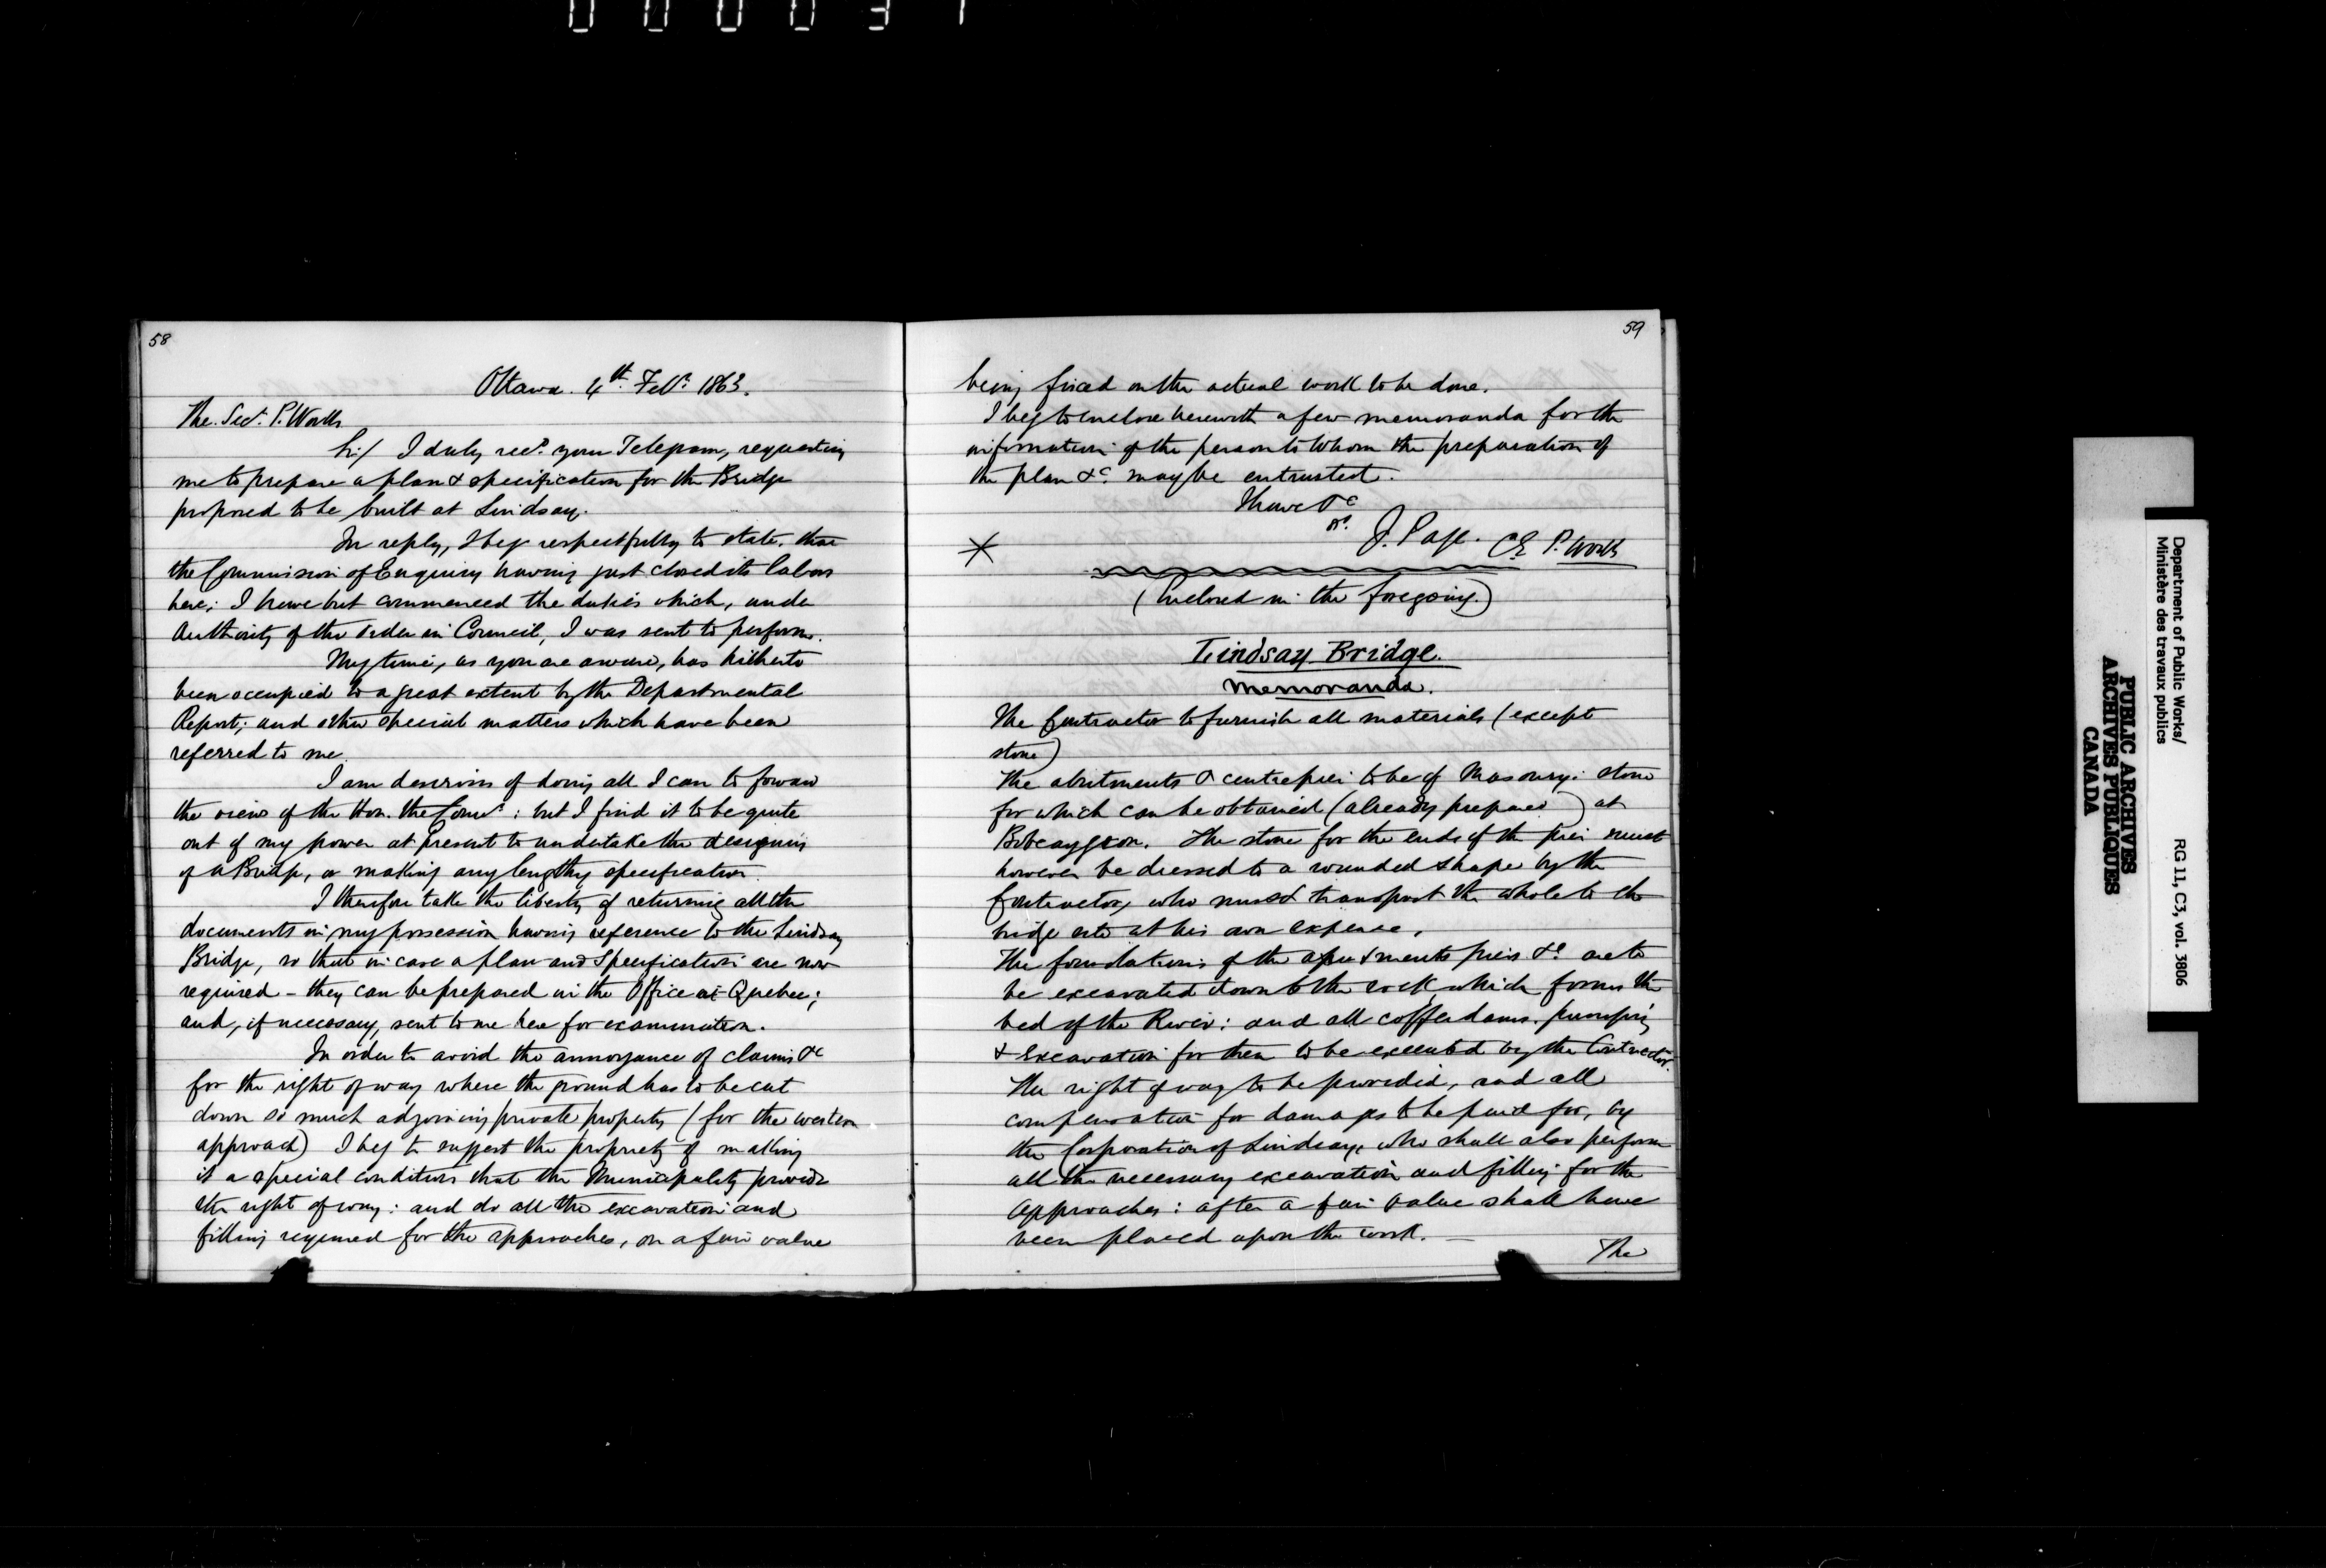 000031
58
Ottawa. 4th. Feb: 1863.
The. Sec. P. Works
Sir/ I duly recd. your Telegram, requesting
me to prepare a plan & specification for the Bridge
proposed to be built at Lindsay.
In reply, I beg respectfully to state. that
the Commission of Enquiry having just closed its labors
here; I have but commenced the duties which, under
authority of the order in Council, I was sent to perform.
My time, as you are aware, has hitherto
been occupied to a great extent by the Departmental
Report; and other special matters which have been
referred to me.
I am desirous of doing all I can to forward
the views of the Hon. the Comr. : but I find it to be quite
out of my power at present to undertake the designing
of a Bridge, or making any lengthy specification.
I therefore take the liberty of returning all the
documents in my possession having reference to the Lindsay
Bridge, so that in case a plan and specification are now
required - they can be prepared in the Office at Quebec;
and, if necessary, sent to me here for examination.
In order to avoid the annoyance of claims &c
for the right of way where the ground has to be cut
down so much adjoining private property (for the western
approach) I beg to suggest the propriety of making
it a special condition that the Municipality provide
the right of way: and do all the excavation and
filling required for the approaches, on a fair value
59
being fixed on the actual work to be done.
I beg to enclose herewith a few memoranda for the
information of the person to whom the preparation of
the plan &c. may be entrusted.
I have &c
J. Page. CE P. Works
(Enclosed in the foregoing.)
Lindsay Bridge.
Memoranda.
The Contractor to furnish all materials (except
stone)
The abutments & centre pier to be of Masonry: stone
for which can be obtained (already prepared) at
Bobcaygeon. The stone for the ends of the pier must
however be dressed to a rounded shape by the
Contractor, who must transport the whole to the
bridge site at his own expense.
The foundations of the abutments piers &c are to
be excavated down to the rock which forms the
bed of the River: and all cofferdams. pumping
& excavation for them to be executed by the Contractor.
The right of way to be provided, and all
compensation for damages to be paid for, by
the Corporation of Lindsay, who shall also perform
all the necessary excavation and filling for the
approaches: after a fair value shall have
been placed upon the work. —
The
Department of Public Works/
Ministère des travaux publics
RG 11, C3, vol. 3806
PUBLIC ARCHIVES
ARCHIVES PUBLIQUES
CANADA